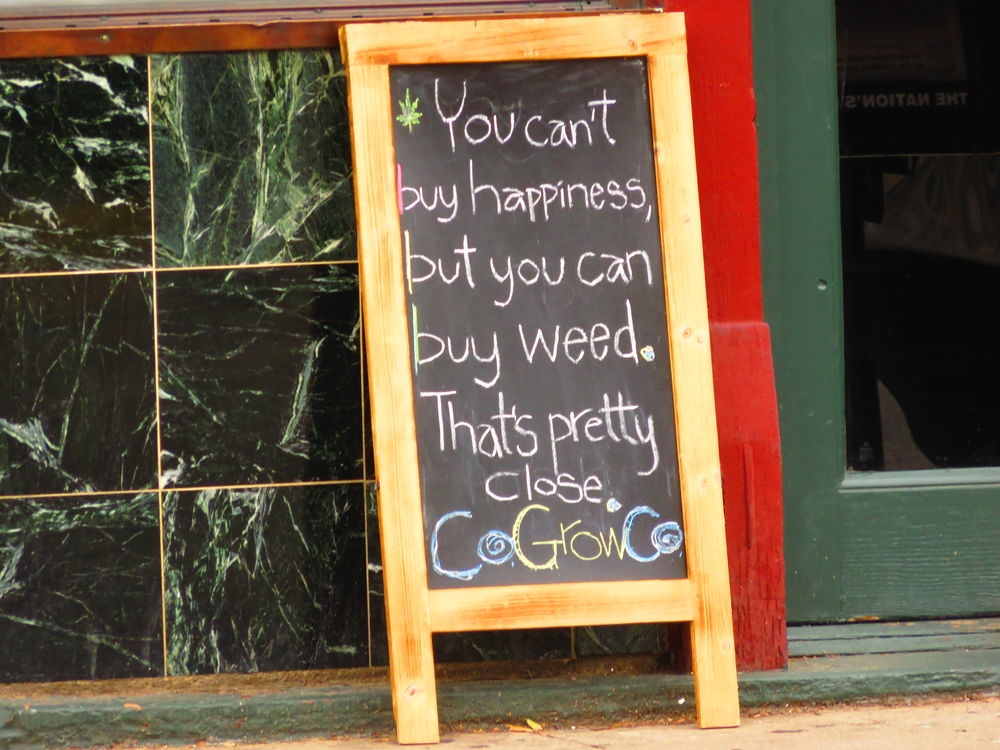 You can't
buy happiness,
but you can
buy weed.
That's pretty
close.
CoGrowCo
THE NATION'S